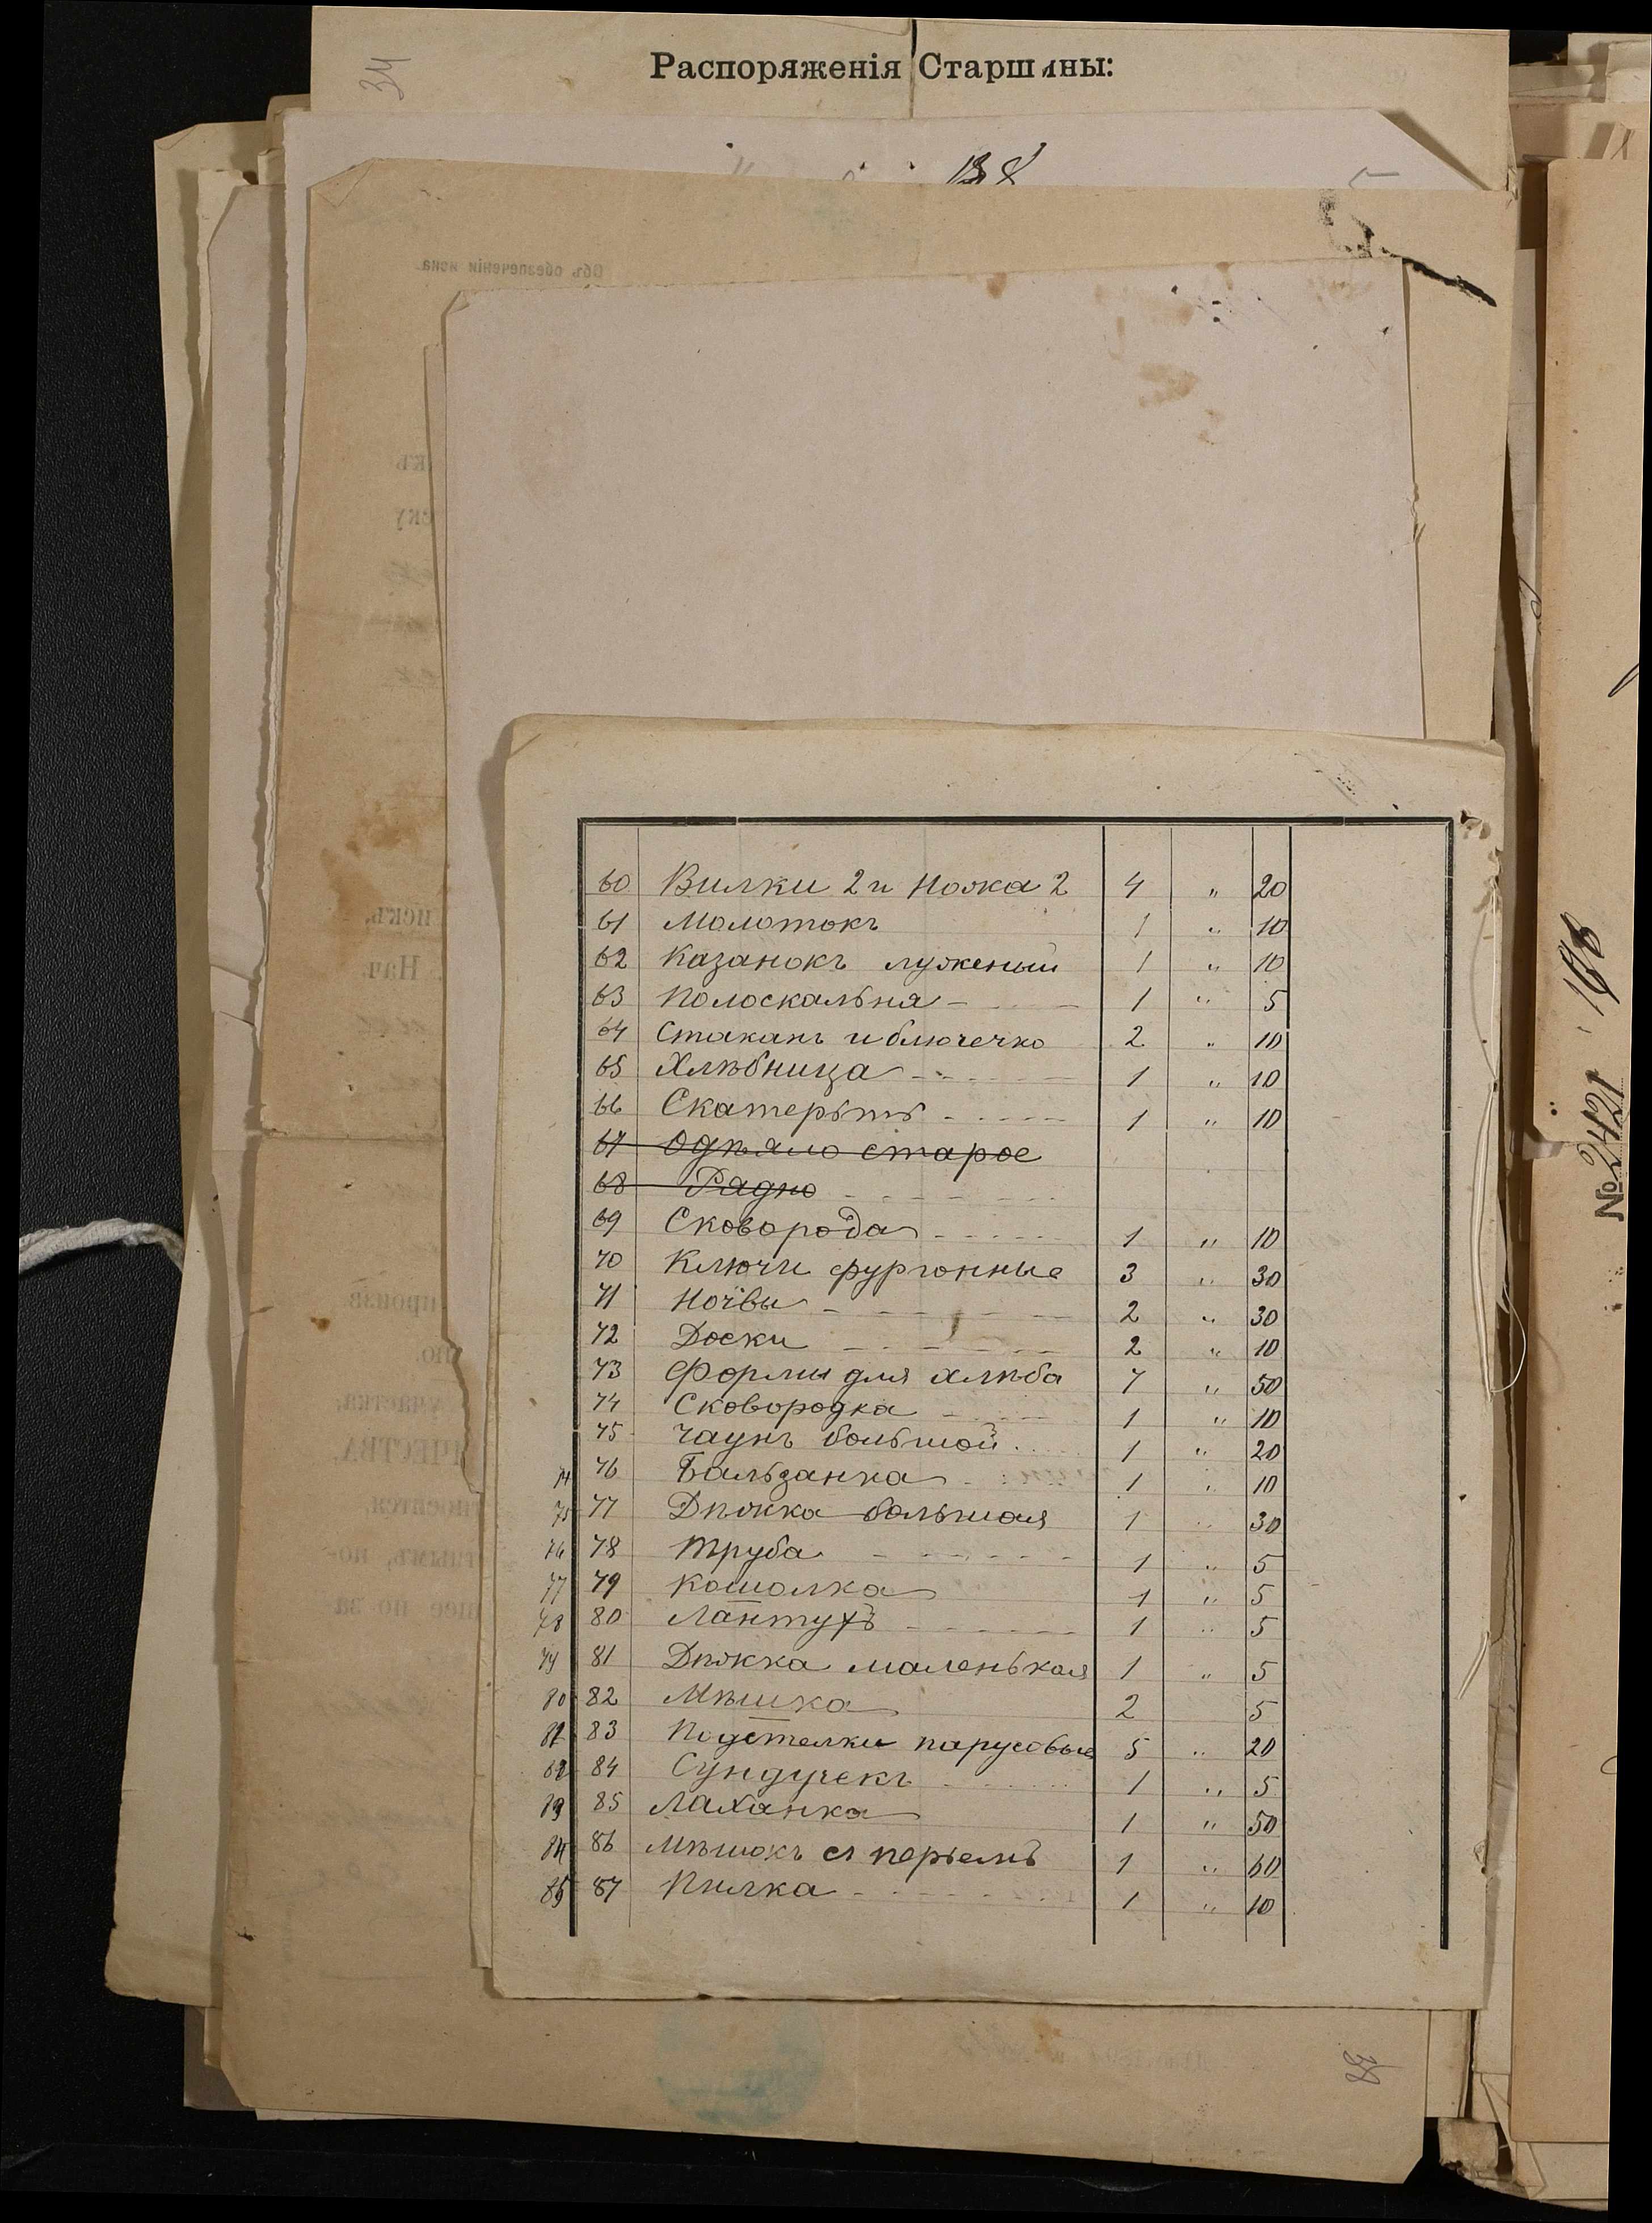 34
Распоряженія Старшины:
Объ обезпеченіи иска
60 Вилки 2 и Ножа 2 4 " 20
61 Молотокъ 1 " 10
62 Казанокъ луженый 1 " 10
63 Полоскальня - 1 " 5
64 Стаканъ и блючечко 2 " 10
65 Хлѣбница 1 " 10
66 Скатерьть 1 " 10
67 Одѣяло старое
68 Рядно
69 Сковорода 1 " 10
70 Ключи фургонные 3 " 30
71 Ночвы 2 " 30
72 Доски 2 " 10
73 Формы для хлѣба 7 " 50
74 Сковородка 1 " 10
75 Чаунъ большой 1 " 20
74 76 Бальзанка 1 " 10
75 77 Дѣжка большая 1 " 30
76 78 Труба 1 " 5
77 79 Кошолка 1 " 5
78 80 Лантухъ 1 " 5
79 81 Дѣжка маленькая 1 " 5
80 82 Мѣшка 2 5
81 83 Подстелки парусовые 5 " 20
82 84 Сундучекъ 1 " 5
83 85 Лаханка 1 " 50
84 86 Мѣшокъ съ перьемъ 1 " 60
85 87 Пилка 1 " 10
38
№ 2421